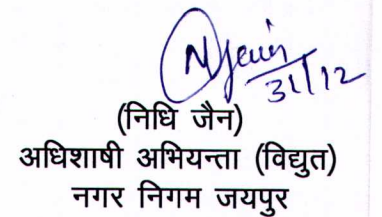 N Jain
31/12
(निधि जैन)
अधिशाषी अभियन्ता (विद्युत)
नगर निगम जयपुर